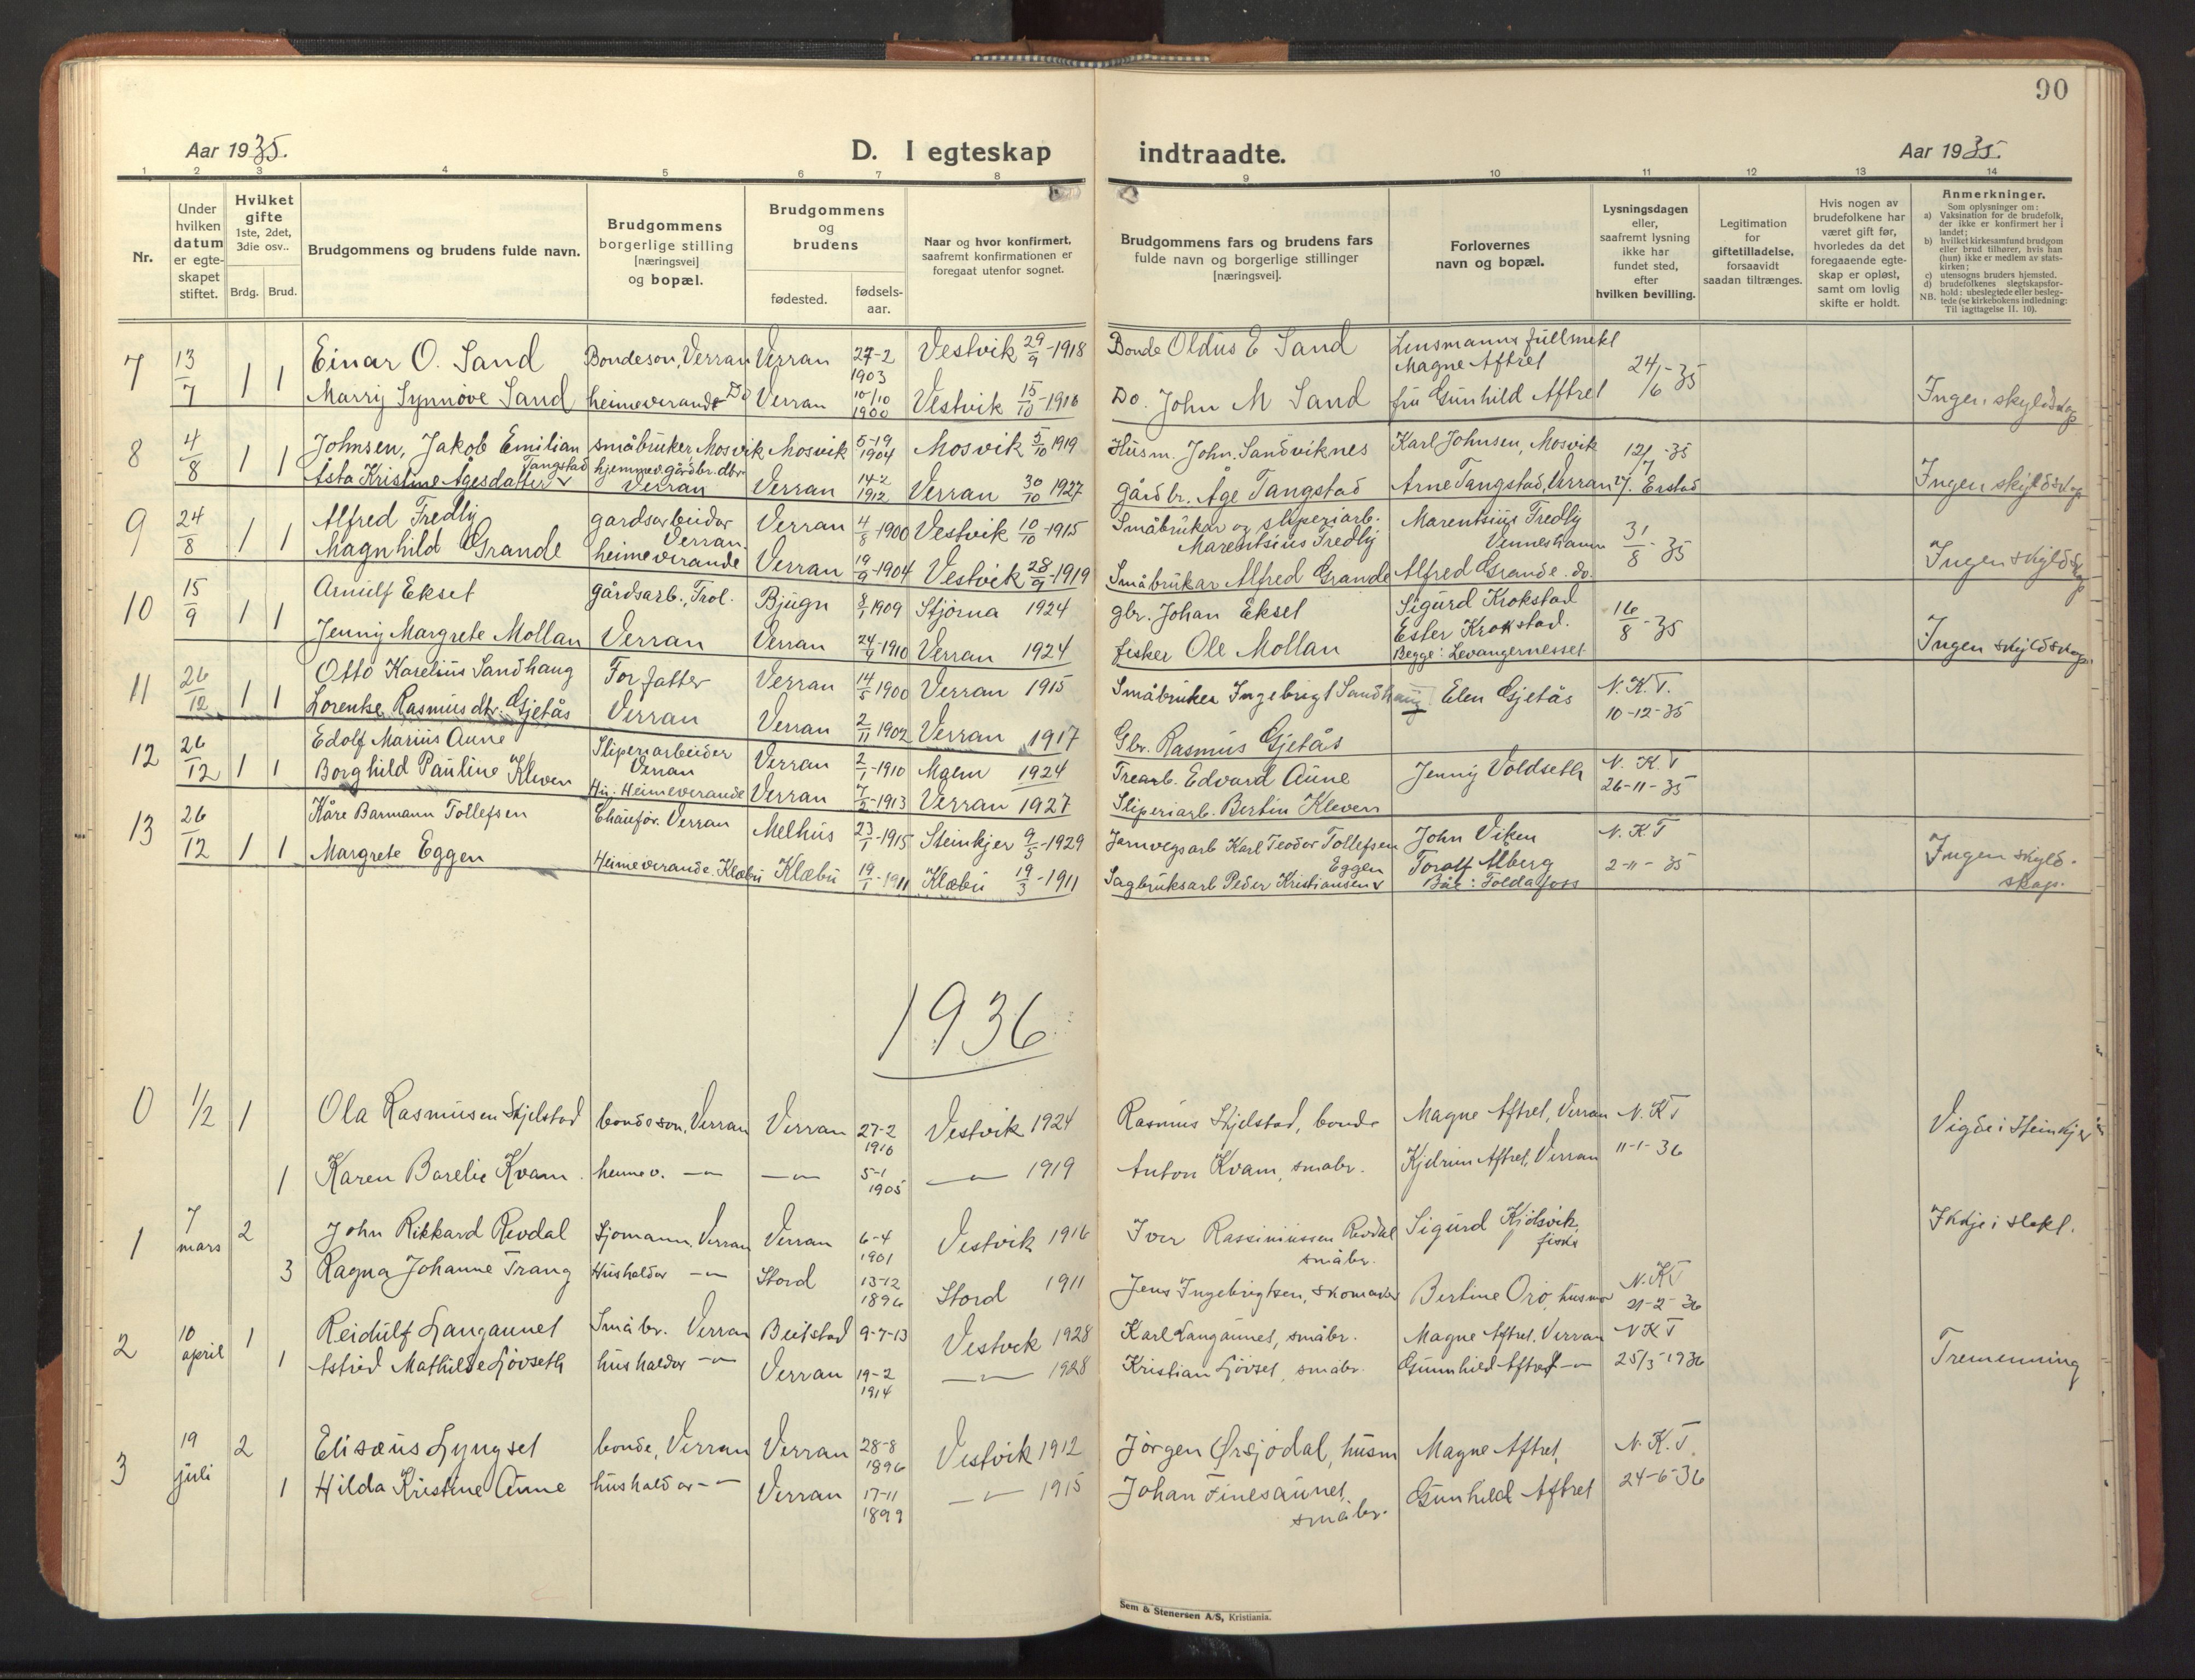 90
Aar 1935.
D. I egteskap indtraadte.
Aar 1935.
1 2 3 4 5 6 7 8 9 10 11 12 13 14
Nr.
Under hvilken datum er egte-skapet stiftet.
Hvilket gifte 1ste, 2det, 3die osv..
Brdg. Brud.
Brudgommens og brudens fulde navn.
Brudgommens borgerlige stilling [næringsvei] og bopæl.
Brudgommens og brudens
fødested.
fødsels-aar.
Naar og hvor konfirmert, saafremt konfirmationen er foregaat utenfor sognet.
Brudgommens fars og brudens fars fulde navn og borgerlige stillinger [næringsvei].
Forlovernes navn og bopæl.
Lysningsdagen eller, saafremt lysning ikke har fundet sted, efter hvilken bevilling.
Legitimation for giftetilladelse, forsaavidt saadan tiltrænges.
Hvis nogen av brudefolkene har været gift før, hvorledes da det foregaaende egte-skap er opløst, samt om lovlig skifte er holdt.
Anmerkninger.
Som oplysninger om:
a) Vaksination for de brudefolk, der ikke er konfirmert her i landet;
b) hvilket kirkesamfund brudgom eller brud tilhører, hvis han (hun) ikke er medlem av stats-kirken;
c) utensogns bruders hjemsted.
d) brudefolkenes slegtskapsfor-hold: ubeslegtede eller besleg-tede (se kirkebokens indledning:
NB. Til iagttagelse II. 10).
7 13/7 1 1 Einar O. Sand Bondeson, Verran Verran 27-2 1903 Vestvik 29/9-1918 Bonde Oldus E Sand Lensmannsfullmekt Magne Aftret 24/6-35
Marry Synnøve Sand heimeverande Do Verran 10/10 1900 Vestvik 15/10-1916 Do. John M Sand fru Gunhild Aftret Ingen skyldskap
8 4/8 1 1 Johnsen, Jakob Emilian småbruker Mosvik Mosvik 5-19 1904 Mosvik 5/10 1919 Husm. John. Sandviknes Karl Johnsen, Mosvik 12/7-35
Åsta Kristine Agesdatter Tangstad hjemmev. gårdbr.dtr Verran Verran 14-2 1912 Verran 30/10 1927 gårdbr. Åge Tangstad Arne Tangstad, Verran Ingen skyldskap
9 24/8 1 1 Alfred Fredly gardsarbeider Verran. Verran 4/8-1900 Vestvik 10/10-1915 Småbrukar og sliperiarb. Marentsius Fredly Marentsius Fredly Venneshamn 31/8-35
Magnhild Grande heimeverande Verran 19/9-1904 Vestvik 28/9-1919 Småbrukar Alfred Grande Alfred Grande. do. Ingen skyldskap
10 15/9 1 1 Arnulf Ekset gårdsarb., Bjugn 8/1 1909 Stjørna 1924 gbr. Johan Ekset Sigurd Krokstad 16/8-35
Jenny Margrete Mollan Verran Verran 24/9-1910 Verran 1924 fisker Ole Mollan Ester Krokstad. Begge: Levangernesset Ingen skyldskap.
11 26/12 1 1 Otto Karelius Sandhaug Forfatter Verran 14/5 1900 Verran 1915 Småbruker Ingebrigt Sandhaug Elen Gjetås N.K.T. 10-12-35
Lorentse Rasmusdtr. Gjetås Verran Verran 2/11 1902 Verran 1917 Gbr. Rasmus Gjetås
12 26/12 1 1 Edolf Marius Aune Sliperiarbeider Verran Verran 2/1-1910 Malm 1924 Trearb. Edvard Aune Jenny Voldseth N.K.T 26-11-35
Borghild Pauline Kleven Heimeverande Verran 7/2-1913 Verran 1927 Sliperiarb. Bertin Kleven
13 26/12 1 1 Kåre Barmann Tollefsen Chauffør. Verran Melhus 23/1-1915 Steinkjer 9/5-1929 Jernvegsarb Karl Teodor Tollefsen John Viken N.K.T
Margrete Eggen Heimeverande. Klæbu Klæbu 19/1-1911 Klæbu 19/3-1911 Sagbruksarb Peder Kristiansen Eggen Toralf Alberg 2-11-35 Ingen skyldskap.
1936
0 1/2 1 Ola Rasmusen Skjelstad bondeson, Verran Verran 27-2 1910 Vestvik 1924 Rasmus Skjelstad, bonde Magne Aftret, Verran N.K.T Vigde i Steinkjer
1 Karen Borelie Kvam heimev. -"- -"- 5-1 1905 -"- 1919 Anton Kvam, småbr. Kjelrun Aftret, Verran 11-1-36
1 7 mars 2 John Rikkard Revdal Sjømann, Verran Verran 6-4 1901 Vestvik 1916 Iver Rassimussen Revdal småbr. Sigurd Kjølsvik, Ikkje i slekt.
3 Ragna Johanne Trang Husholdar -"- Stord 13-12 1896 Stord 1911 Jens Ingebrigtsen, skomaker Bertine Oro, husmor N.K.T 21-2-36
2 10 april 1 Reidulf Langaunet Småbr. Verran Beitstad 9-7-13 Vestvik 1928 Karl Langaunet, småbr. Magne Aftret. Verran N.K.T
1 Astrid Mathilde Ljøvseth husholdar -"- Verran 19-2 1914 -"- 1928 Kristian Ljøvset, småbr. Gunnhild Aftret -"- 25/3-1936 Tremenning
3 19 juli 2 Elisæus Lyngset bonde, Verran Verran 28-8 1896 Vestvik 1912 Jørgen Ørsjødal, husm Magne Aftret, N.K.T.
1 Hilda Kristine Aune husholdar -"- Verran 17-11 1899 -"- 1915 Johan Finesaunet, småbr. Gunhild Aftret 24-6-36
Sem & Stenersen A/S, Kristiania.